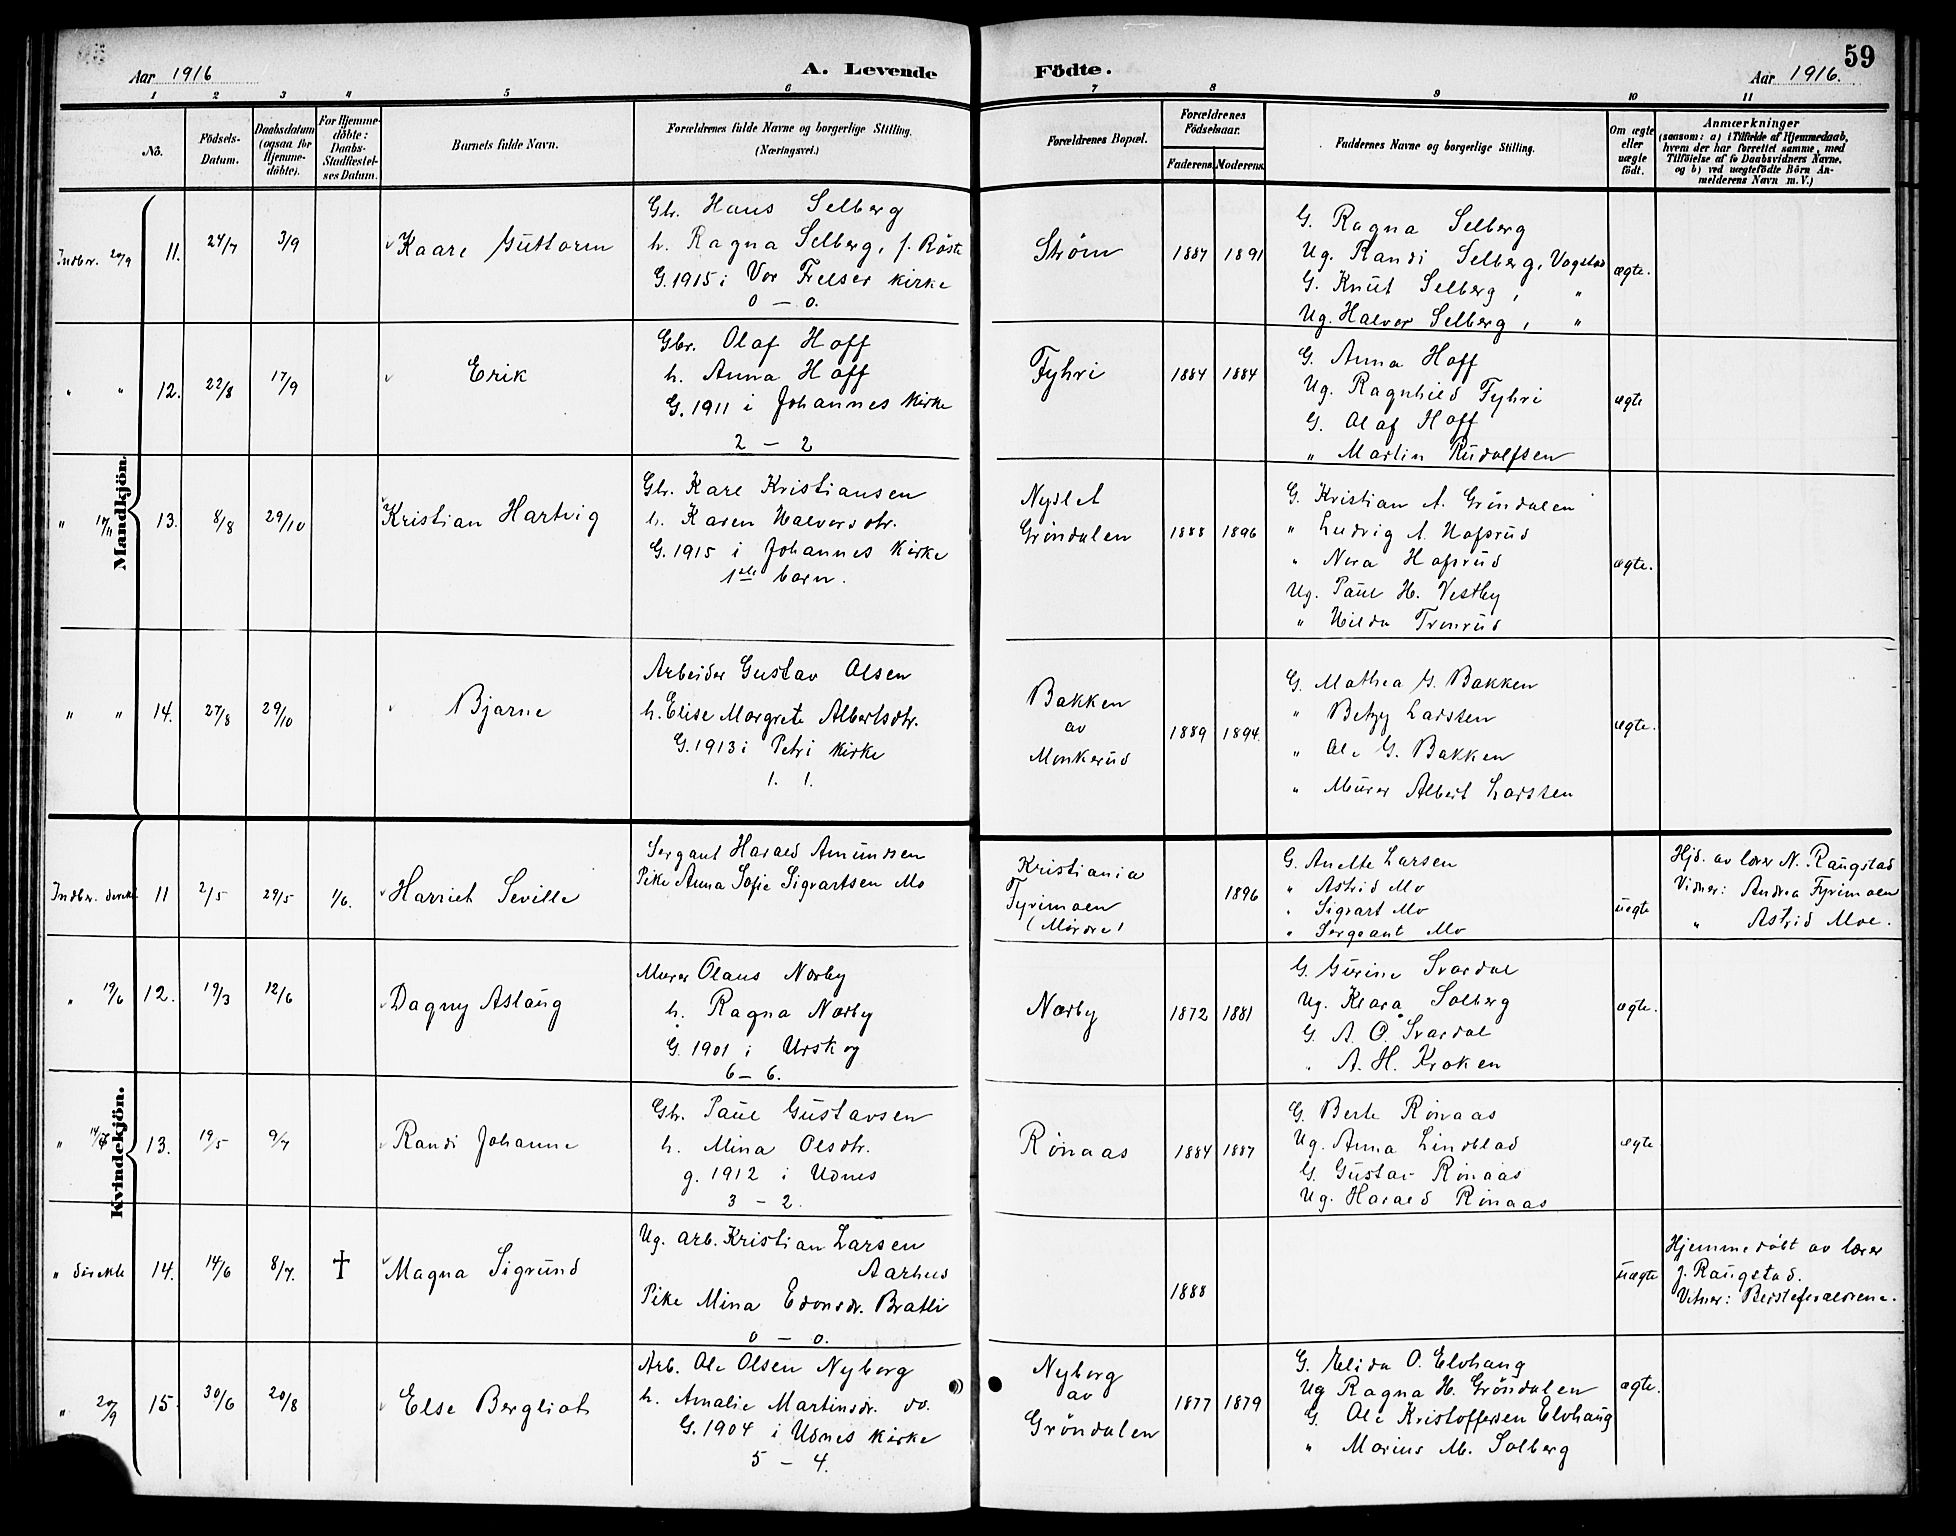 59
Aar 1916
A. Levende
Födte.
Aar 1916.
1 2 3 4 5 6 7 8 9 10 11
No.
Födsels-Datum.
Daabsdatum (ogsaa for Hjemme-döbte).
For Hjemme-döbte: Daabs-Stadfæstel-ses Datum.
Barnets fulde Navn.
Forældrenes fulde Navne og borgerlige Stilling.
(Næringsvei.)
Forældrenes Bopæl.
Forældrenes Födselsaar.
Faderens. Moderens.
Faddernes Navne og borgerlige Stilling.
Om ægte eller uægte födt.
Anmærkninger
(saasom: a) i Tilfælde af Hjemmedaab, hvem der har forrettet samme, med Tilföielse af to Daabsvidners Navne, og b) ved uægtefödte Börn An-melderens Navn m. V.)
Mandkjön.
Indber. 20/9 11. 24/7 3/9 Kaare Guttorm
Gbr. Hans Selberg
h. Ragna Selberg, f. Röste
G. 1915 i Vor Frelser kirke
0 – 0.
Strøm 1887 1891
G. Ragna Selberg
Ug. Randi Selberg, Vogstad
G. Knut Selberg, "
Ug. Halvor Selberg, "
ægte.
" " 12. 22/8 17/9 Erik
Gbr. Olaf Hoff
h. Anna Hoff
G. 1911 i Johannes kirke
2 – 2
Fyhri 1884 1884
G. Anna Hoff
Ug. Ragnhild Fyhri
G. Olaf Hoff
" Martin Rudolfsen
ægte
" 17/11 13. 8/8 29/10 Kristian Hartvig
Gbr. Karl Kristiansen
h. Karen Halvorsdtr.
G. 1915 i Johannes kirke
1ste barn.
Nyslet
Grøndalen 1888 1896
G. Kristian A. Grøndalen
" Ludvig A. Hofsrud
" Nora Hofsrud
Ug. Paul H. Vestby
" Hilda Tronrud
ægte.
" " 14. 27/8 29/10 Bjarne
Arbeider Gustav Olsen
h. Elise Margrete Albertsdtr.
G. 1913 i Petri kirke
1. 1.
Bakken
av
Monkerud 1889 1894.
G. Mathea G. Bakken
" Betzy Larsten
" Ole G. Bakken
" Murer Albert Larsten
ægte.
Kvindekjön.
Indber. direkte 11 2/5 29/5 1/6. Harriet Seville
Sergant Harald Amundsen
Pike Anna Sofie Sigvartsen Mo
Kristiania
Fyrimoen
(Mørdre) 1896
G. Anette Larsen
" Astrid Mo
" Sigvart Mo
" Sergeant Mo
uegte
Hjd. av lærer N. Raugstad
Vidner: Andrea Fyrimoen
" Astrid Moe.
" 19/6 12. 19/3 12/6 Dagny Aslaug
Murer Olaus Nærby
h. Ragna Nærby
G. 1901 i Urskog
6 – 6.
Nærby 1872 1881
G. Gurine Svardal
Ug. Klara Solberg
G. A. O. Svardal
" A. H. Kroken
ægte.
" 13. 19/5 9/7 Randi Johanne
Gbr. Paul Gustavsen
h. Mina Olsdtr.
g. 1912 i Udnes
3 – 2.
Rønaas 1884 1887
G. Berte Rønaas
Ug. Anna Lindblad
G. Gustav Rønaas
Ug. Harald Rønaas
ægte
" direkte 14. 14/6 8/7. † Magna Sigrund
Ug. arb. Kristian Larsen
Aarhus
Pike Mina Edvnsdr. Bratli
0 – 0.
1888
uægte
Hjemmedøbt av lærer
J. Raugstad.
Vitner: Besteforældrene.
" 20/9 15. 30/6 20/8 Else Bergliot
Arb. Ole Olsen Nyborg
h. Amalie Martinsdr. do.
G. 1904 i Udnes kirke
5 – 4.
Nyborg
av
Grøndalen 1877 1879
G. Elida O. Elvhaug
Ug Ragna H. Grøndalen
G. Ole Kristoffersen Elvhaug
" Marius M. Solberg
ægte.